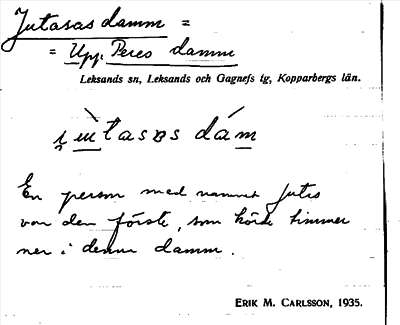 Jutasas damm =
= Upp. Peres damm
Leksands sn, Leksands och Gagnefs tg, Kopparbergs län.
dám
En person med namnet Jutis
var den förste, som körde timmer
ner i denna damm.
ERIK M. CARLSSON, 1935.